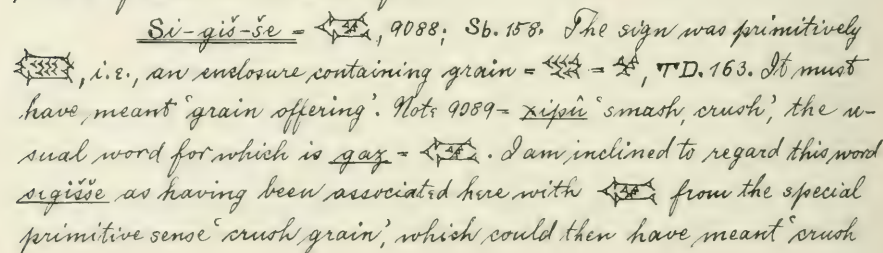 Si-giš-še = , 9088; Sb. 158. The sign was primitively
, i.e., an enclosure containing grain = = , TD. 163. It must
have meant 'grain offering'. Note 9089 = xipû 'smash, crush', the u-
sual word for which is gaz = . I am inclined to regard this word
sigišše as having been associated here with from the special
primitive sense 'crush grain', which could then have meant 'crush